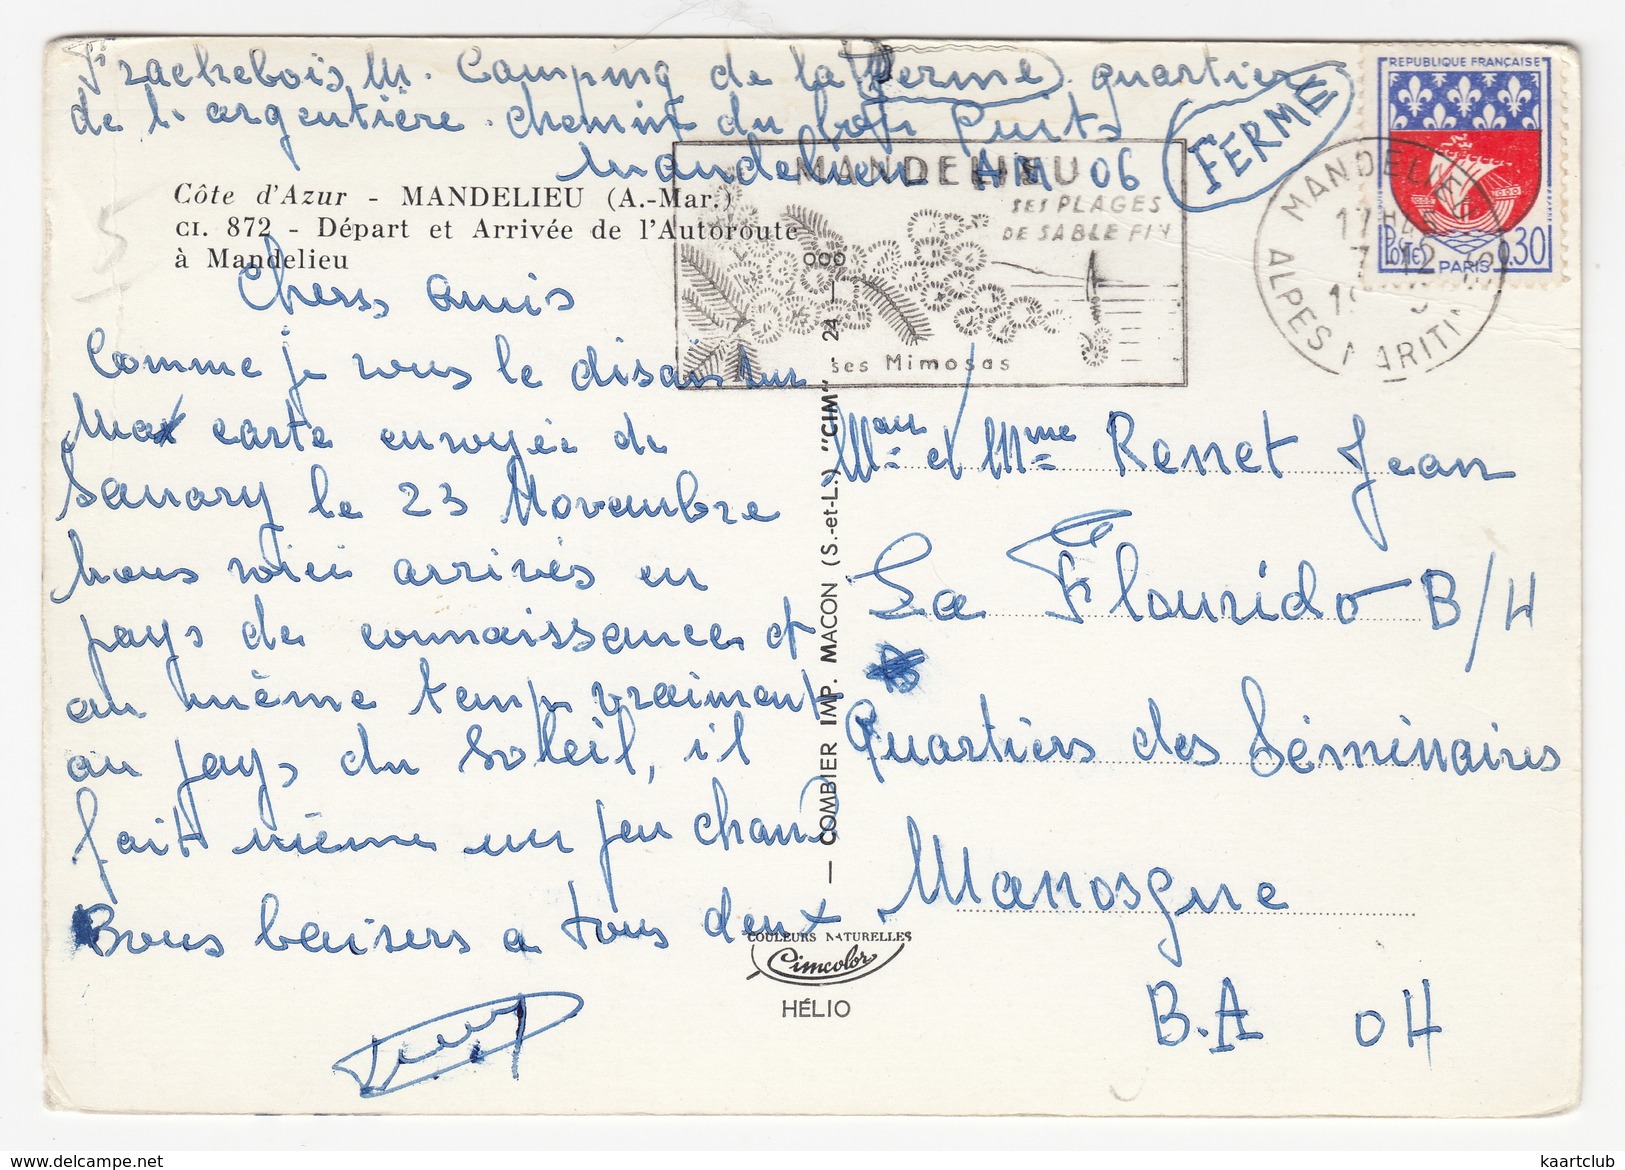 Frachebois M. Camping de la Ferme quartier
de l'argentière. chemin du bon Puits
Mandelieu AM 06
FERME
Côte d'Azur - MANDELIEU (A.-Mar.)
CI. 872 - Départ et Arrivée de l'Autoroute
à Mandelieu
MANDELIEU
SES PLAGES
DE SABLE FIN
ses Mimosas
MANDELIEU
17H45
7-12
ALPES MARITI
REPUBLIQUE FRANÇAISE
Postes
PARIS
0,30
Chers amis
Comme je vous le disais sur
Ma carte envoyée de
Sanary le 23 Novembre
nous voici arrivés en
pays de connaissances et
au même temps vraiment
au pays du soleil, il
fait même un peu chaud
Bons baisers a tous deux
Mr et Mme Renet Jean
La Flourido B/H
Quartiers des Séminaires
Manosque
B.A 04
— COMBIER IMP. MACON (S.-et-L.) "CIM" 24 — 000
COULEURS NATURELLES
Cimcolor
HÉLIO
5
kaartclub
www.delcampe.net